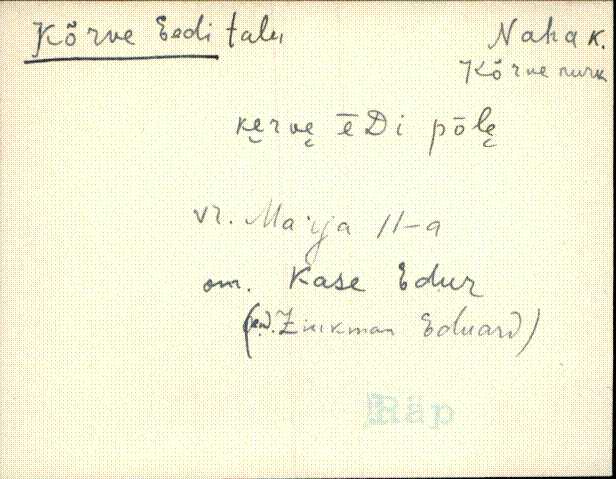 Kõrve Eedi talu
Naha k.
Kõrve nurk
kẹrvę ēDi pōlę
vr. Marja 11-a
om. Kase Edur
(en. Zirkman Eduard)
Räp